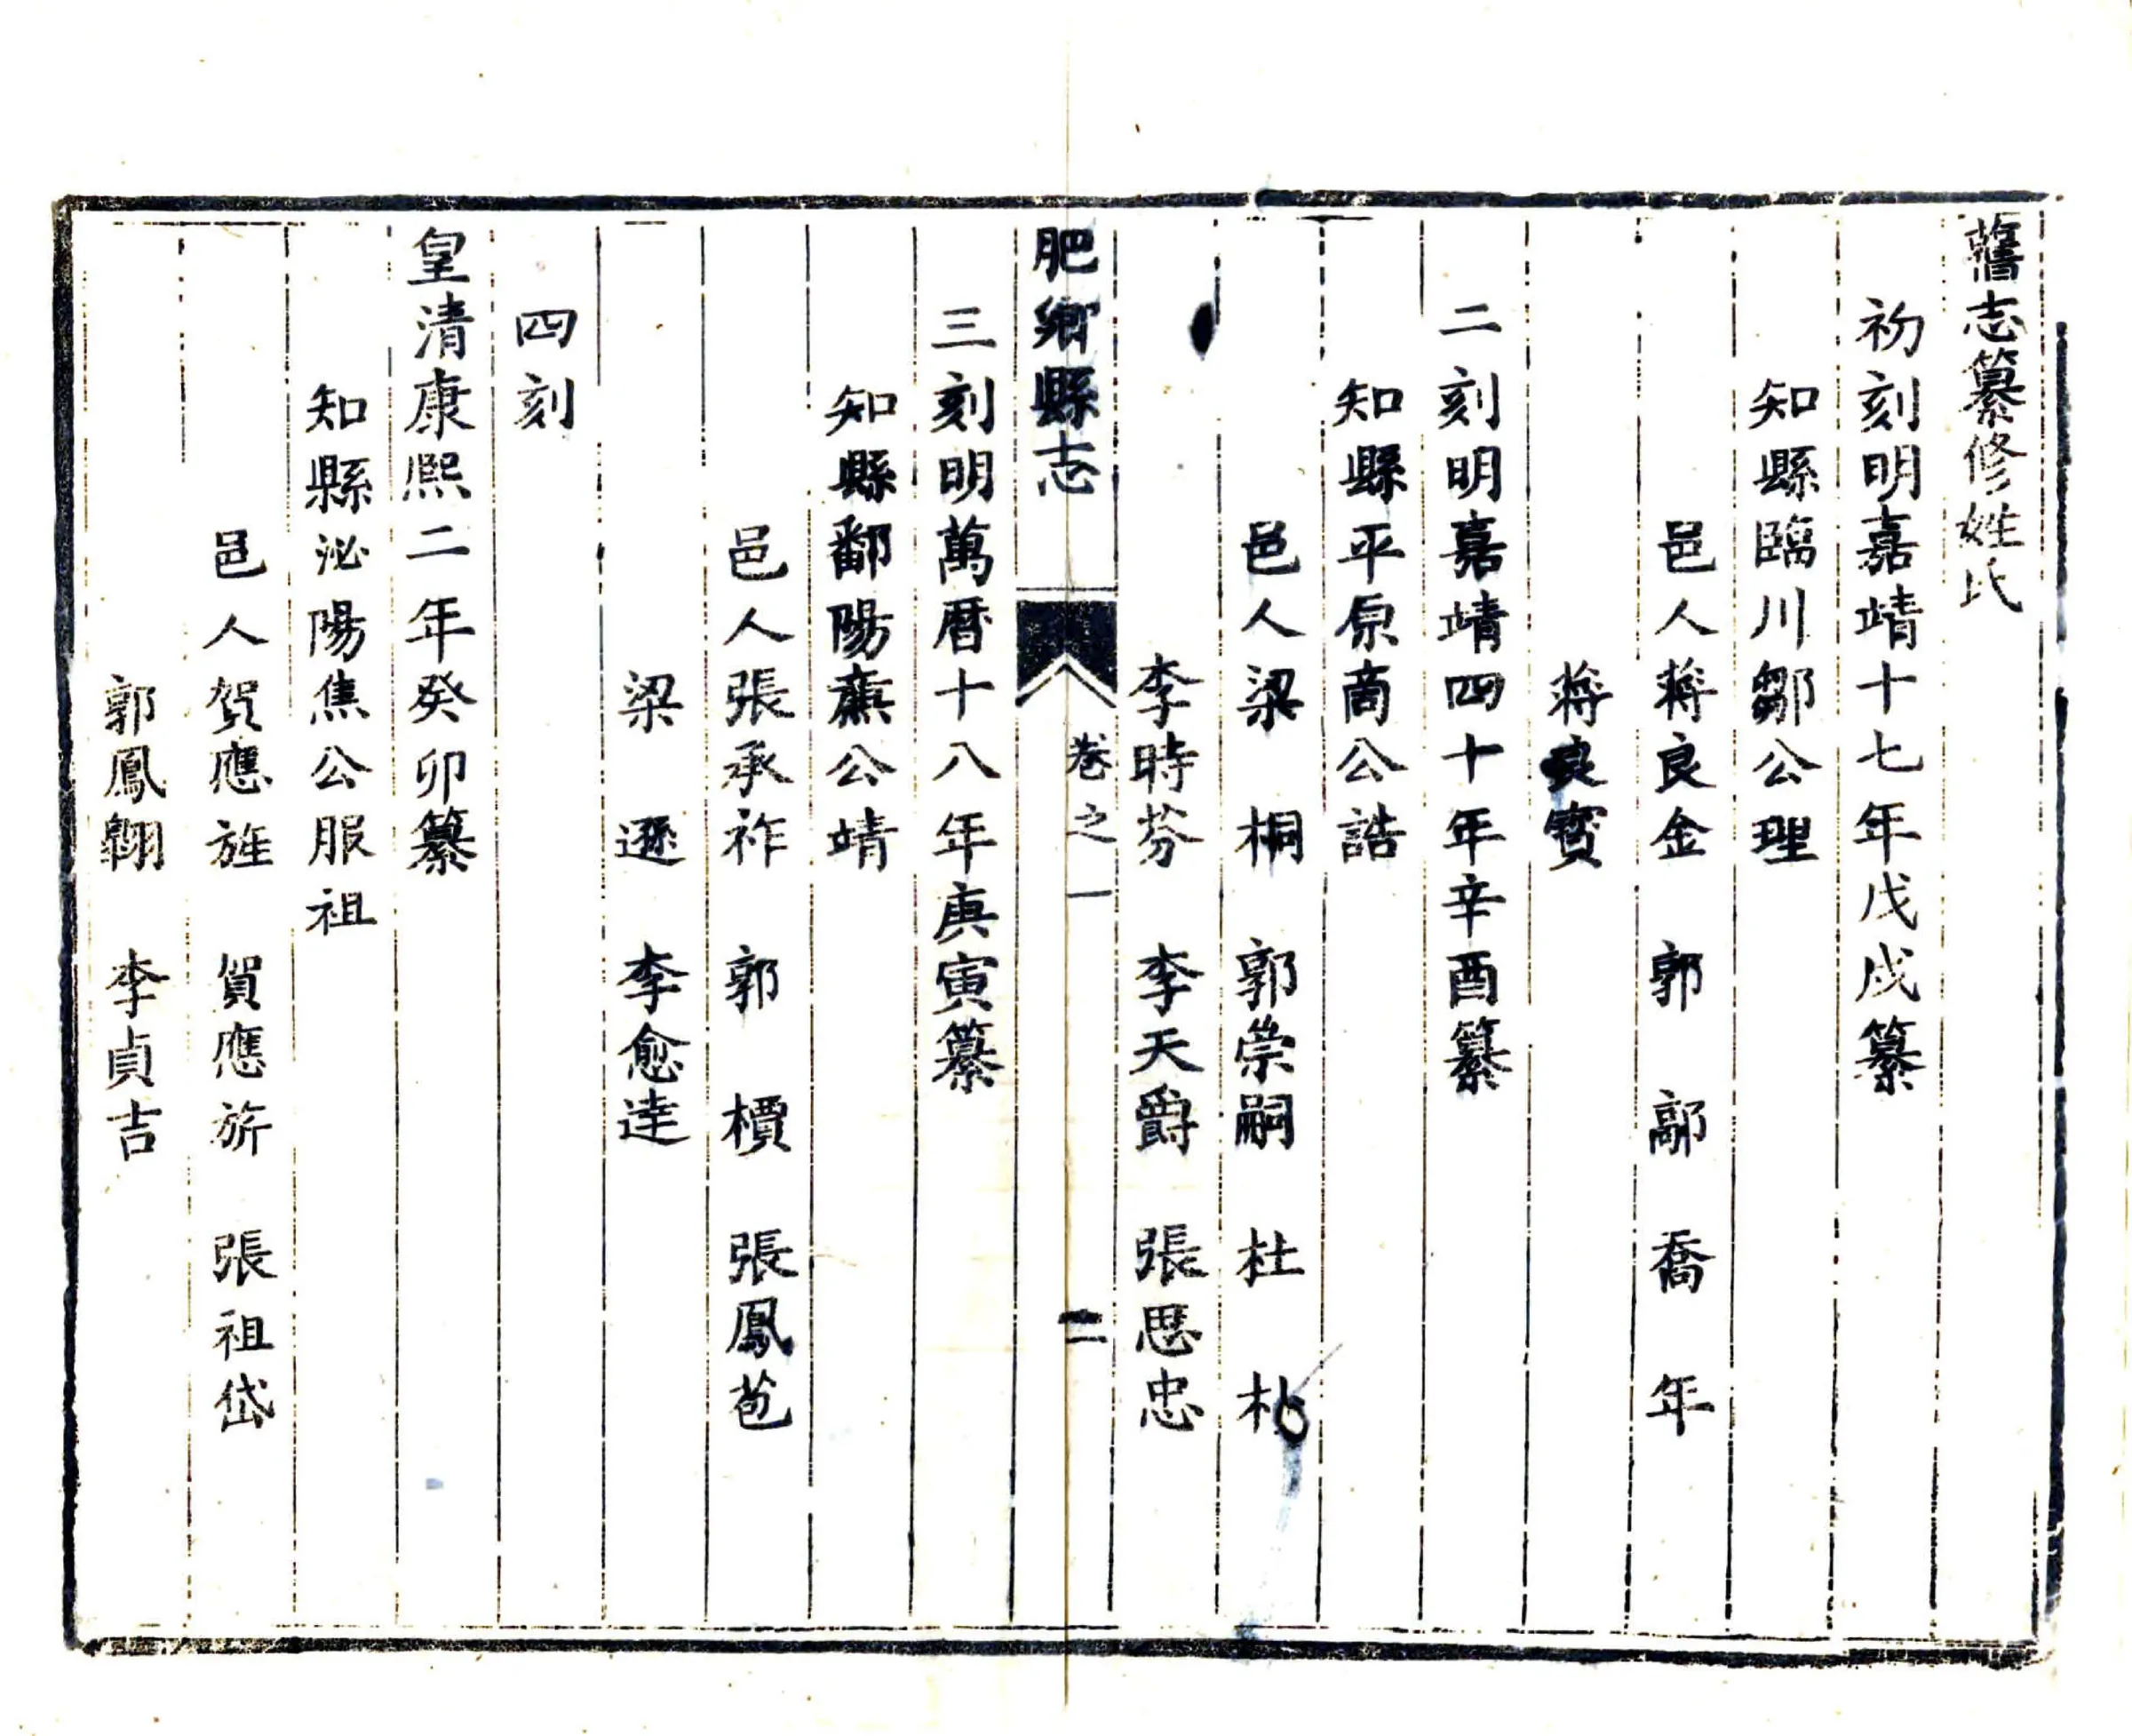 舊志纂修姓氏
初刻明嘉靖十七年戊戌纂
知縣臨川鄒公理
邑人蔣良金 郭鄗 喬年
蔣良寳
二刻明嘉靖四十年辛酉纂
知縣平原商公誥
邑人梁桐 郭崇嗣 杜朴
李時芬 李天爵 張思忠
肥鄉縣志 卷之一 二
三刻明萬曆十八年庚寅纂
知縣鄱陽𤎅公靖
邑人張承祚 郭檟 張鳳苞
梁遜 李愈達
四刻
皇清康熙二年癸卯纂
知縣泌陽焦公服祖
邑人賀應旌 賀應旂 張祖岱
郭鳳翱 李貞吉